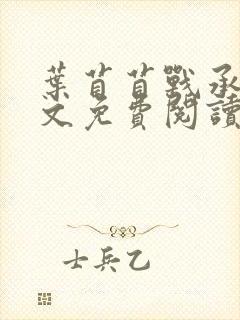 葉苜苜戰承
文免費閱讀
士兵乙